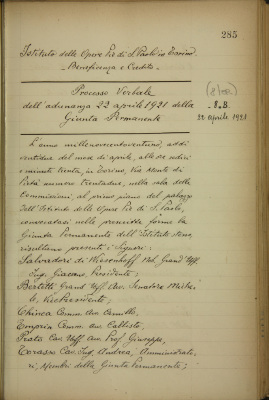 285
Istituto delle Opere Pie di S. Paolo in Torino
- Beneficenza e Credito -
Processo Verbale
dell'adunanza 22 aprile 1921 della
Giunta Permanente
8.B.
22 aprile 1921
L'anno millenovecentoventuno, addì
ventidue del mese di aprile, alle ore sedici
e minuti trenta, in Torino, via Monte di
Pietà numero trentadue, nella sala delle
Commissioni, al primo piano del palazzo
dell'Istituto delle Opere Pie di S. Paolo,
convocatasi nelle prescritte forme la
Giunta Permanente dell'Istituto stesso,
risultano presenti i Signori:
Salvadori di Wiesenhoff Nob. Grand' Uff.
Ing. Giacomo, Presidente;
Bertetti Grand' Uff. Avv. Senatore Miche-
le, Vice Presidente;
Chiesa Comm. Avv. Camillo,
Comm. Avv. Callisto,
Prato Cav. Uff. Avv. Prof. Giuseppe,
Cav. Ing. Andrea, Amministrato-
ri, Membri della Giunta Permanente;